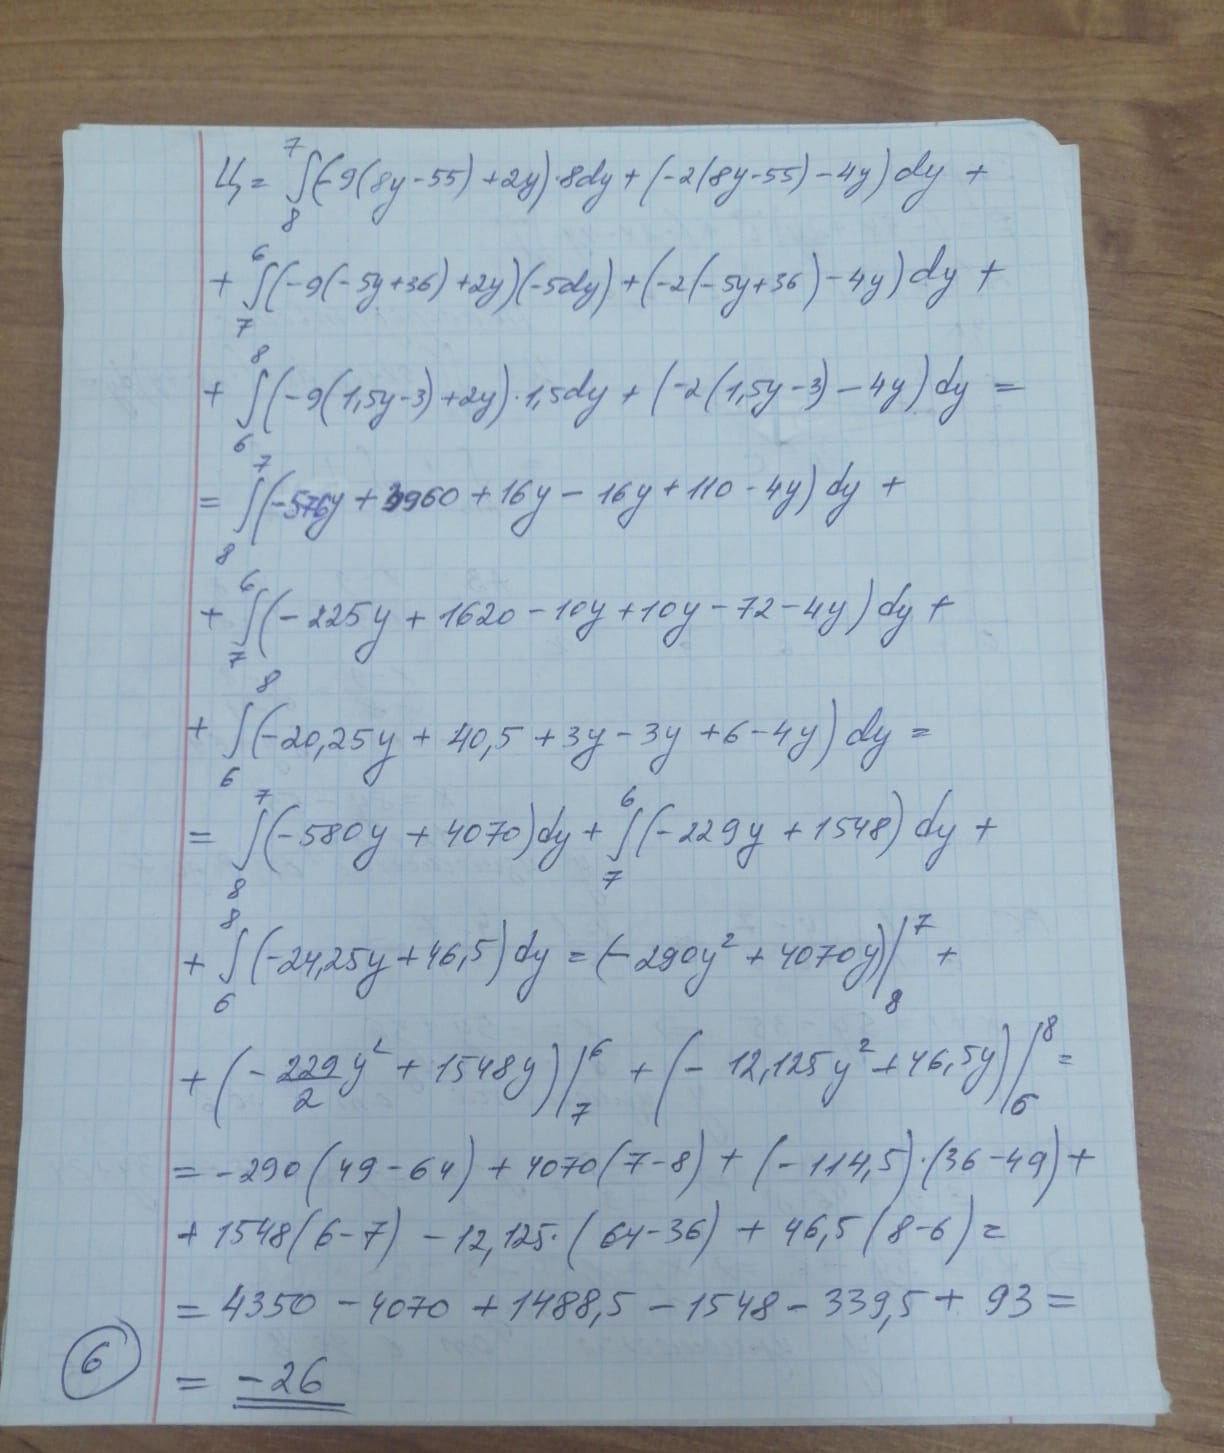 Ц = ∫₈⁷ (-9(8y-55)+2y)·8dy + (-2(8y-55)-4y)dy +
+ ∫₇⁶ (-9(-5y+36)+2y)(-5dy) + (-2(-5y+36)-4y)dy +
+ ∫₆⁸ (-9(1,5y-3)+2y)·1,5dy + (-2(1,5y-3)-4y)dy =
= ∫₈⁷ (-576y + 3960 + 16y - 16y + 110 - 4y)dy +
+ ∫₇⁶ (-225y + 1620 - 10y + 10y - 72 - 4y)dy +
+ ∫₆⁸ (-20,25y + 40,5 + 3y - 3y + 6 - 4y)dy =
= ∫₈⁷ (-580y + 4070)dy + ∫₇⁶ (-229y + 1548)dy +
+ ∫₆⁸ (-24,25y + 46,5)dy = (-290y² + 4070y)|₈⁷ +
+ (-229/2 y² + 1548y)|₇⁶ + (-12,125y² + 46,5y)|₆⁸ =
= -290(49-64) + 4070(7-8) + (-114,5)·(36-49) +
+ 1548(6-7) - 12,125·(64-36) + 46,5(8-6) =
= 4350 - 4070 + 1488,5 - 1548 - 339,5 + 93 =
= -26
6